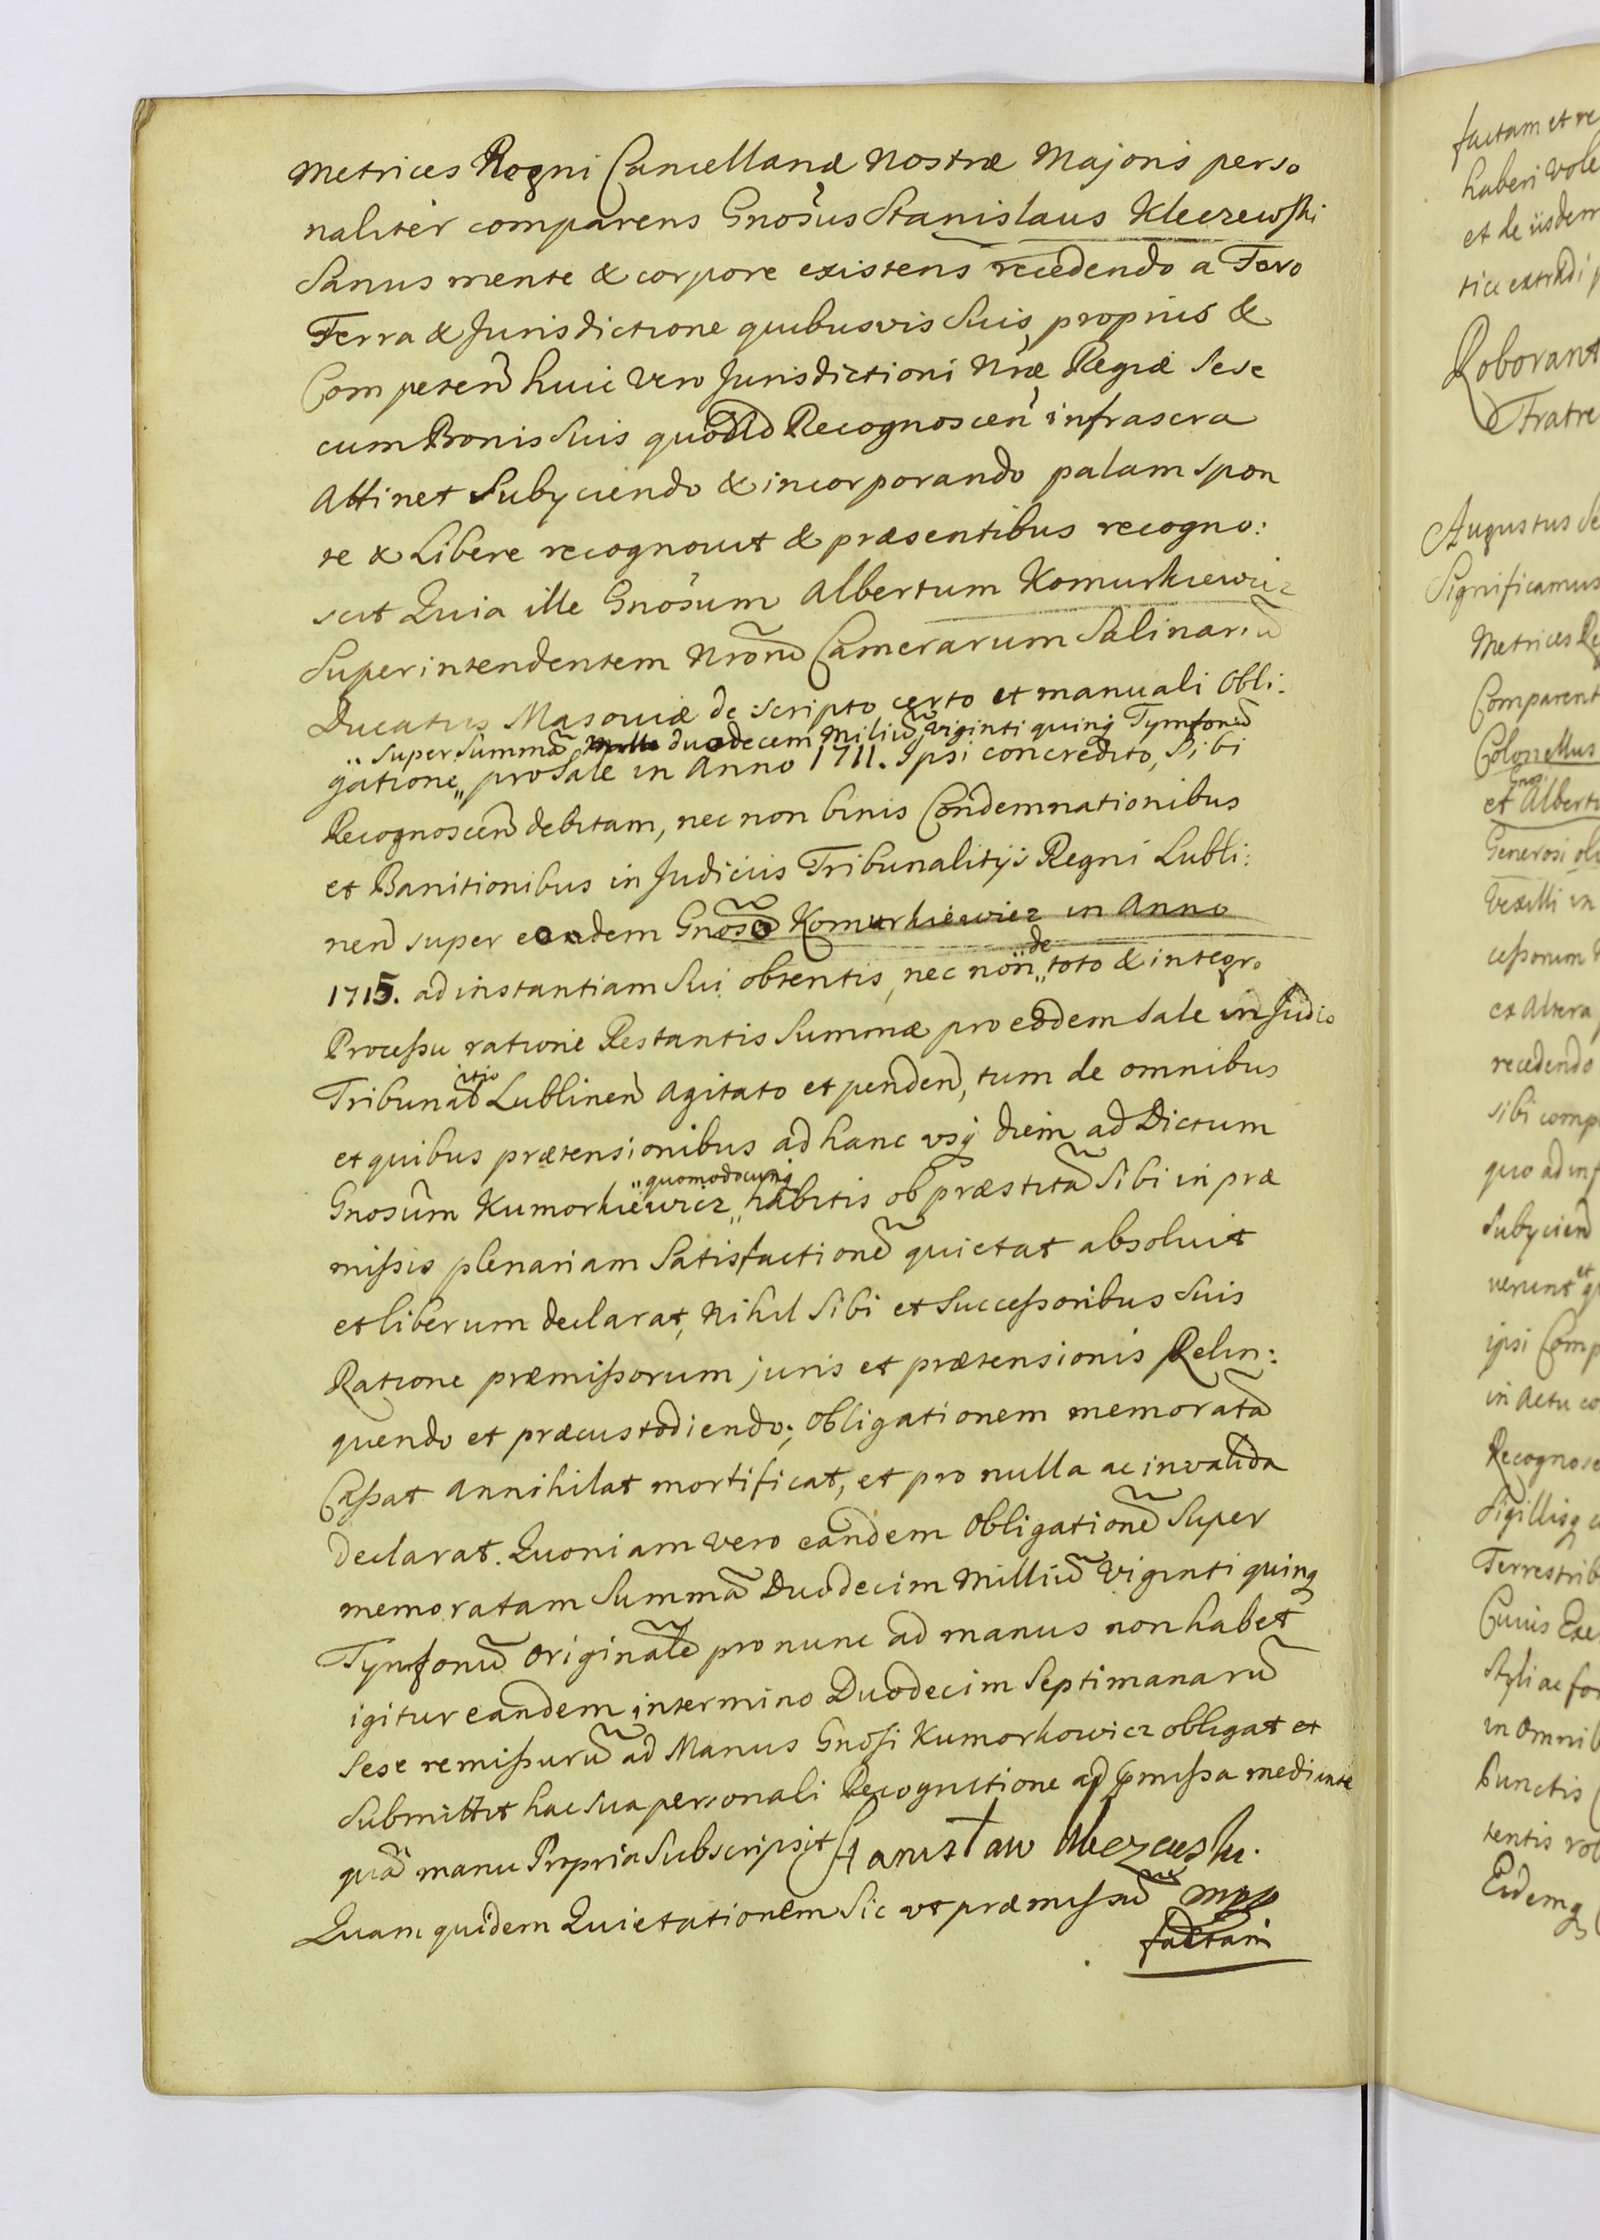 Metrices Regni Cancellariæ Nostræ Majoris perso
naliter comparens Gnosus Stanislaus Kleczewski
Sanus mente & corpore existens recedendo a Foro
Terra & Jurisdictione quibusvis suis proprius &
Competen huic vero Jurisdictioni Nræ Regiæ Sese
cum Bonis suis quoad Recognoscen infrascra
Attinet Subyciendo & incorporando palam spon
te & Libere recognovit & præsentibus recogno:
scit Quia ille Gnosum Albertum Komurkiewicz
Superintendentem Nrorū Camerarum Salinariū
Ducatus Masoviæ de scripto certo et manuali Obli:
„ super Summā duodecem Miliū viginti quinq Tymfonū
gatione „ pro Sale in Anno 1711. Ipsi concredito, Sibi
Recognoscen debitam, nec non binis Condemnationibus
et Banitionibus in Judiciis Tribunalitijs Regni Lubli:
nen super eodem Gnoso Komurkiewicz in Anno
1715. ad instantiam Sui obtentis, nec non „ de toto & integro
Processu ratione Restantis Summæ pro eodem Sale in Judio
Tribunalitio Lublinen agitato et penden, tum de omnibus
et quibus prætensionibus ad hanc usq diem ad Dictum
Gnosum Kumorkiewicz „ quomodocunq habitis ob præstitā Sibi in præ
missis plenariam Satisfactionē quietat absoluit
et liberum declarat, Nihil Sibi et Successoribus Suis
Ratione præmissorum juris et prætensionis Relin:
quendo et præcustodiendo; Obligationem memoratā
Cassat annihilat mortificat, et pro nulla ac invalida
declarat. Quoniam vero eandem Obligationē Super
memoratam Summā Duodecim Milliū Viginti quinq
Tymfonū Originalē pro nunc ad manus non habet
igitur eandem intermino Duodecim Septimanarū
Sese remissurū ad Manus Gnosi Kumorkowicz obligat et
Submittit hac Sua personali Recognitione ad pmissa mediante
quā manu Propria Subscripsit Stanisław Kleczewski.
mpp
Quam quidem Quietationem Sic ut præmissū
factam

factam et re
haberi vole
et de iisdem
tice extradi p
Roborant
Fratre
Augustus Se
Significamus
Metrices Re
Comparent
Colonellus
et Gnos Albertu
Generosi oli
Vexilli in
cessorum
ex Altera
recedendo
sibi comp
quo ad inf
Subycien
verunt et q
ipsi Comp
in Actu co
Recognosc
Sigillisq
Terrestrib
Cuius Exe
Styli ac for
in omnib
Punctis
tentis rob
Eidemq